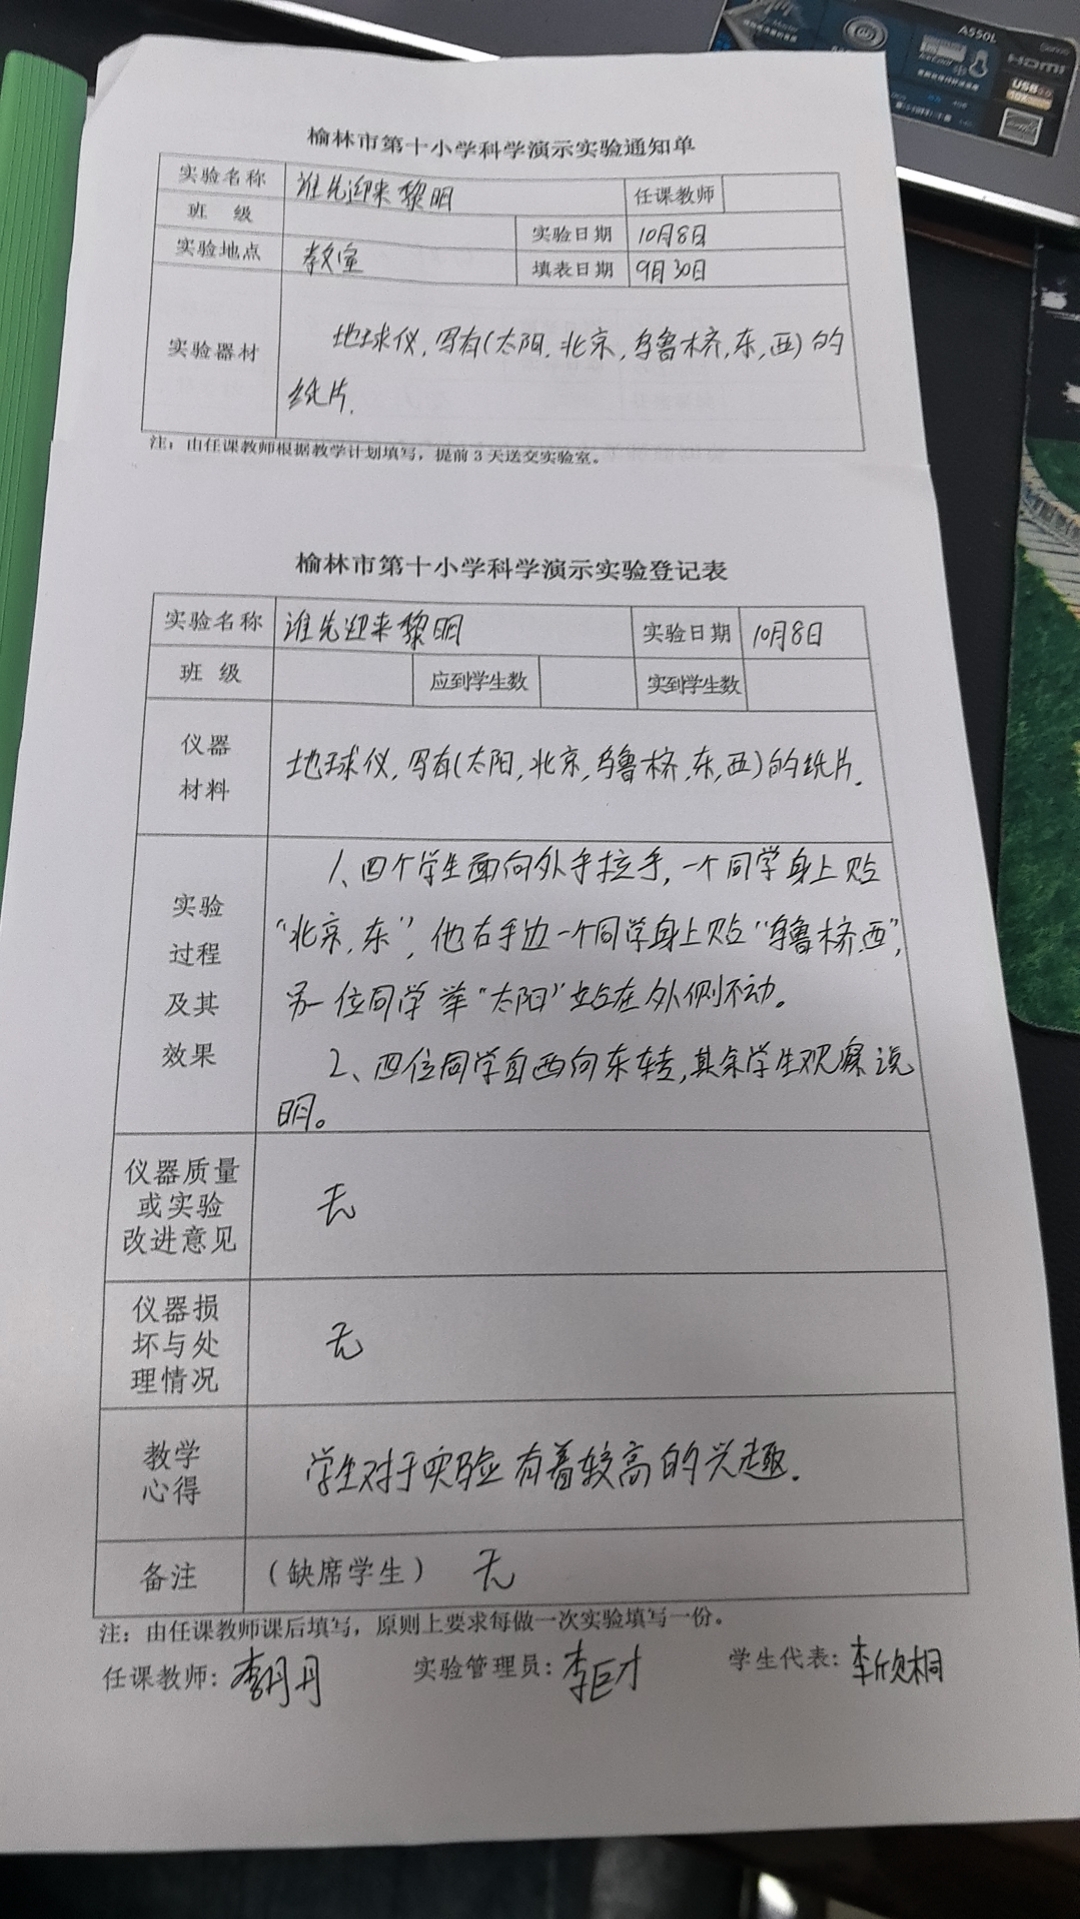 A550L
HDMI
榆林市第十小学科学演示实验通知单
实验名称 谁先迎来黎明 任课教师
班 级 实验日期 10月8日
实验地点 教室 填表日期 9月30日
实验器材 地球仪,写有(太阳,北京,乌鲁木齐,东,西)的
纸片.
注：由任课教师根据教学计划填写，提前3天送交实验室。
榆林市第十小学科学演示实验登记表
实验名称 谁先迎来黎明 实验日期 10月8日
班 级 应到学生数 实到学生数
仪器
材料
地球仪,写有(太阳,北京,乌鲁木齐,东,西)的纸片.
实验
过程
及其
效果
1、四个学生面向外手拉手,一个同学身上贴
“北京,东”,他右手边一个同学身上贴“乌鲁木齐,西”,
另一位同学举“太阳”站在外侧不动。
2、四位同学自西向东转,其余学生观察说
明。
仪器质量
或实验
改进意见
无
仪器损
坏与处
理情况
无
教学
心得
学生对于实验有着较高的兴趣.
备注 （缺席学生） 无
注：由任课教师课后填写，原则上要求每做一次实验填写一份。
任课教师: 李丹丹 实验管理员: 李巨才 学生代表: 李欣桐